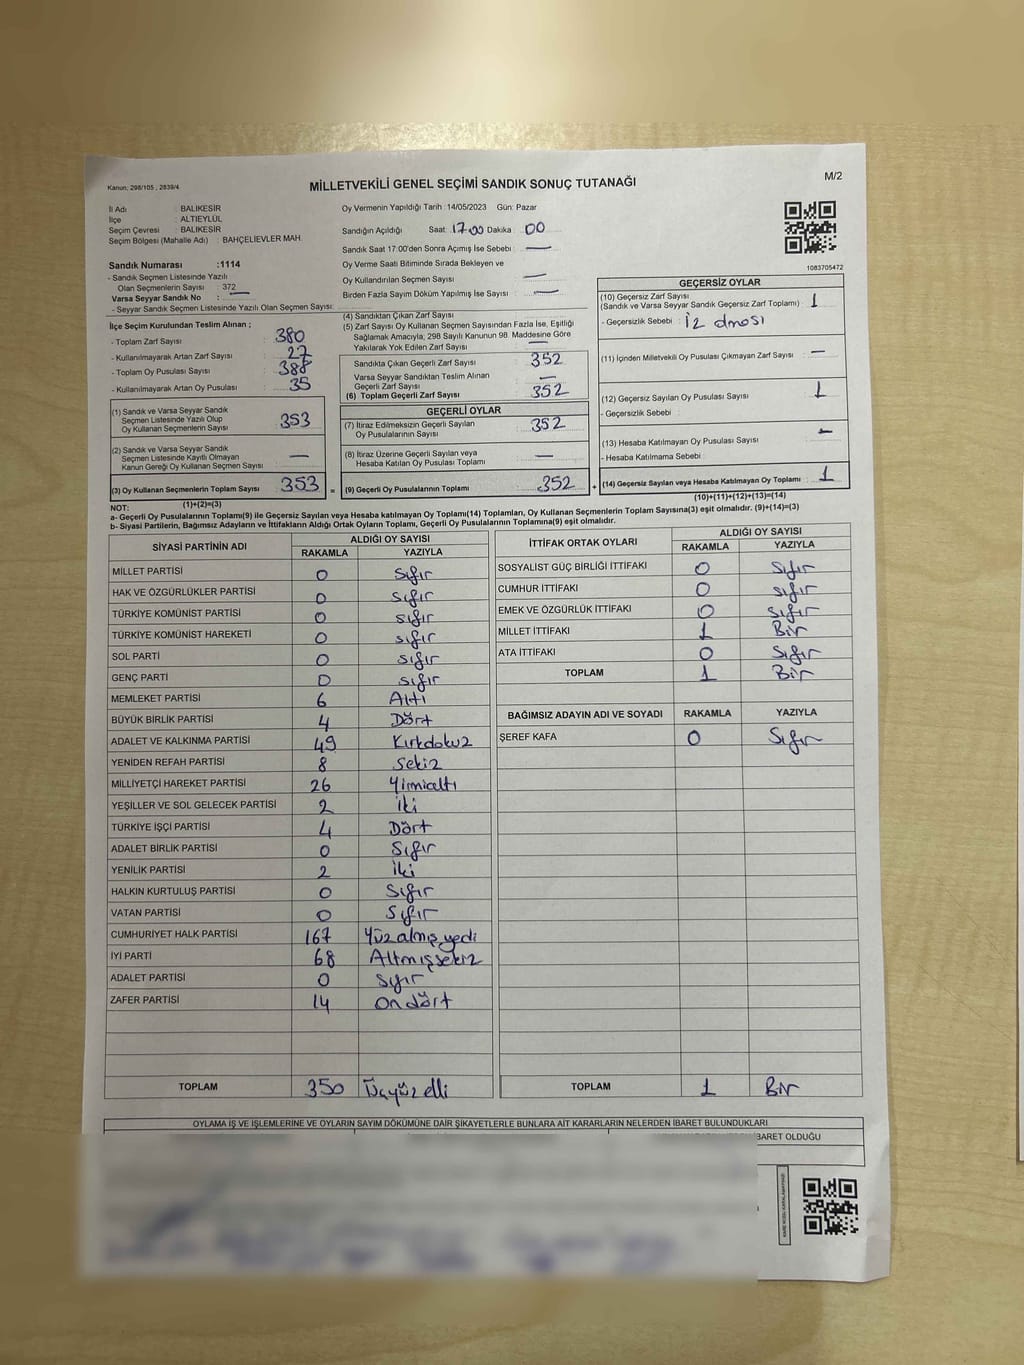 Kanun; 298/105 , 2839/4
MİLLETVEKİLİ GENEL SEÇİMİ SANDIK SONUÇ TUTANAĞI
M/2
İl Adı : BALIKESİR
İlçe : ALTIEYLÜL
Seçim Çevresi : BALIKESİR
Seçim Bölgesi (Mahalle Adı) : BAHÇELİEVLER MAH.
Sandık Numarası :1114
- Sandık Seçmen Listesinde Yazılı
Olan Seçmenlerin Sayısı : 372
Varsa Seyyar Sandık No : —
- Seyyar Sandık Seçmen Listesinde Yazılı Olan Seçmen Sayısı:
Oy Vermenin Yapıldığı Tarih :14/05/2023 Gün: Pazar
Sandığın Açıldığı Saat: 17.00 Dakika : 00
Sandık Saat 17:00'den Sonra Açımış İse Sebebi : —
Oy Verme Saati Bitiminde Sırada Bekleyen ve
Oy Kullandırılan Seçmen Sayısı : —
Birden Fazla Sayım Döküm Yapılmış İse Sayısı : —
1083705472
İlçe Seçim Kurulundan Teslim Alınan ;
- Toplam Zarf Sayısı : 380
- Kullanılmayarak Artan Zarf Sayısı : 27
- Toplam Oy Pusulası Sayısı : 388
- Kullanılmayarak Artan Oy Pusulası : 35
(1) Sandık ve Varsa Seyyar Sandık
Seçmen Listesinde Yazılı Olup
Oy Kullanan Seçmenlerin Sayısı : 353
(2) Sandık ve Varsa Seyyar Sandık
Seçmen Listesinde Kayıtlı Olmayan
Kanun Gereği Oy Kullanan Seçmen Sayısı : —
(3) Oy Kullanan Seçmenlerin Toplam Sayısı : 353 =
(4) Sandıktan Çıkan Zarf Sayısı :
(5) Zarf Sayısı Oy Kullanan Seçmen Sayısından Fazla İse, Eşitliği
Sağlamak Amacıyla; 298 Sayılı Kanunun 98. Maddesine Göre
Yakılarak Yok Edilen Zarf Sayısı : —
Sandıkta Çıkan Geçerli Zarf Sayısı : 352
Varsa Seyyar Sandıktan Teslim Alınan
Geçerli Zarf Sayısı : —
(6) Toplam Geçerli Zarf Sayısı : 352
GEÇERLİ OYLAR
(7) İtiraz Edilmeksizin Geçerli Sayılan
Oy Pusulasının Sayısı : 352
(8) İtiraz Üzerine Geçerli Sayılan veya
Hesaba Katılan Oy Pusulası Toplamı : —
(9) Geçerli Oy Pusulalarının Toplamı : 352 +
GEÇERSİZ OYLAR
(10) Geçersiz Zarf Sayısı
(Sandık ve Varsa Seyyar Sandık Geçersiz Zarf Toplamı) : 1
- Geçersizlik Sebebi : İz olması
(11) İçinden Milletvekili Oy Pusulası Çıkmayan Zarf Sayısı : —
(12) Geçersiz Sayılan Oy Pusulası Sayısı : 1
- Geçersizlik Sebebi :
(13) Hesaba Katılmayan Oy Pusulası Sayısı : —
- Hesaba Katılmama Sebebi :
(14) Geçersiz Sayılan veya Hesaba Katılmayan Oy Toplamı : 1
(10)+(11)+(12)+(13)=(14)
NOT: (1)+(2)=(3)
a- Geçerli Oy Pusulalarının Toplamı(9) ile Geçersiz Sayılan veya Hesaba katılmayan Oy Toplamı(14) Toplamları, Oy Kullanan Seçmenlerin Toplam Sayısına(3) eşit olmalıdır. (9)+(14)=(3)
b- Siyasi Partilerin, Bağımsız Adayların ve İttifakların Aldığı Ortak Oyların Toplamı, Geçerli Oy Pusulalarının Toplamına(9) eşit olmalıdır.
SİYASİ PARTİNİN ADI ALDIĞI OY SAYISI
RAKAMLA YAZIYLA
MİLLET PARTİSİ 0 Sıfır
HAK VE ÖZGÜRLÜKLER PARTİSİ 0 sıfır
TÜRKİYE KOMÜNİST PARTİSİ 0 sıfır
TÜRKİYE KOMÜNİST HAREKETİ 0 sıfır
SOL PARTİ 0 sıfır
GENÇ PARTİ 0 sıfır
MEMLEKET PARTİSİ 6 Altı
BÜYÜK BİRLİK PARTİSİ 4 Dört
ADALET VE KALKINMA PARTİSİ 49 Kırkdokuz
YENİDEN REFAH PARTİSİ 8 Sekiz
MİLLİYETÇİ HAREKET PARTİSİ 26 Yirmialtı
YEŞİLLER VE SOL GELECEK PARTİSİ 2 İki
TÜRKİYE İŞÇİ PARTİSİ 4 Dört
ADALET BİRLİK PARTİSİ 0 Sıfır
YENİLİK PARTİSİ 2 İki
HALKIN KURTULUŞ PARTİSİ 0 Sıfır
VATAN PARTİSİ 0 Sıfır
CUMHURİYET HALK PARTİSİ 167 Yüzalmış yedi
İYİ PARTİ 68 Altmışsekiz
ADALET PARTİSİ 0 sıfır
ZAFER PARTİSİ 14 ondört
TOPLAM 350 Üçyüzelli
İTTİFAK ORTAK OYLARI ALDIĞI OY SAYISI
RAKAMLA YAZIYLA
SOSYALİST GÜÇ BİRLİĞİ İTTİFAKI 0 Sıfır
CUMHUR İTTİFAKI 0 sıfır
EMEK VE ÖZGÜRLÜK İTTİFAKI 0 sıfır
MİLLET İTTİFAKI 1 Bir
ATA İTTİFAKI 0 Sıfır
TOPLAM 1 Bir
BAĞIMSIZ ADAYIN ADI VE SOYADI RAKAMLA YAZIYLA
ŞEREF KAFA 0 Sıfır
TOPLAM 1 Bir
OYLAMA İŞ VE İŞLEMLERİNE VE OYLARIN SAYIM DÖKÜMÜNE DAİR ŞİKAYETLERLE BUNLARA AİT KARARLARIN NELERDEN İBARET BULUNDUKLARI
İBARET OLDUĞU